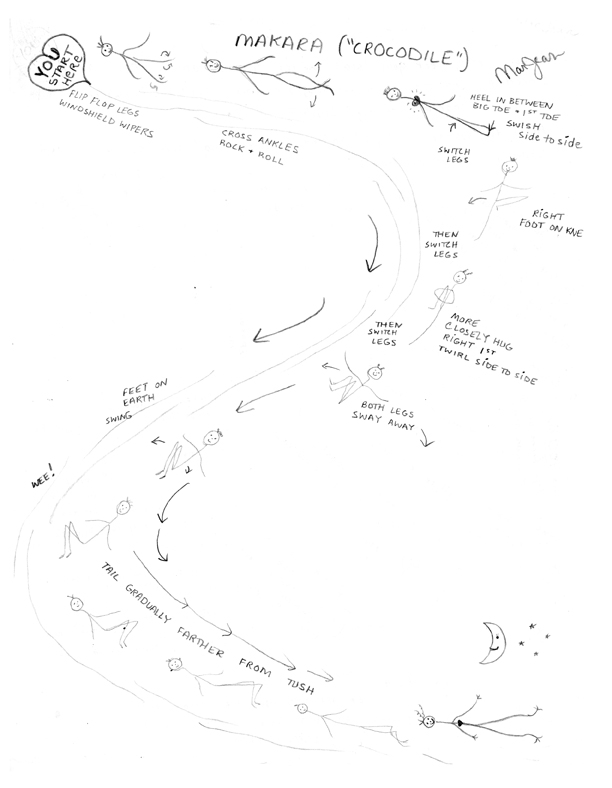 MAKARA ("CROCODILE")
MarJean
YOU
START
HERE
FLIP FLOP LEGS
WINDSHIELD WIPERS
CROSS ANKLES
ROCK + ROLL
HEEL IN BETWEEN
BIG TOE + 1ST TOE
SWISH
Side to side
SWITCH
LEGS
RIGHT
FOOT ON KNE
THEN
SWITCH
LEGS
MORE
CLOSELY HUG
RIGHT 1ST
TWIRL SIDE TO SIDE
THEN
SWITCH
LEGS
BOTH LEGS
SWAY AWAY
FEET ON
EARTH
SWING
WEE!
TAIL GRADUALLY FARTHER FROM TUSH